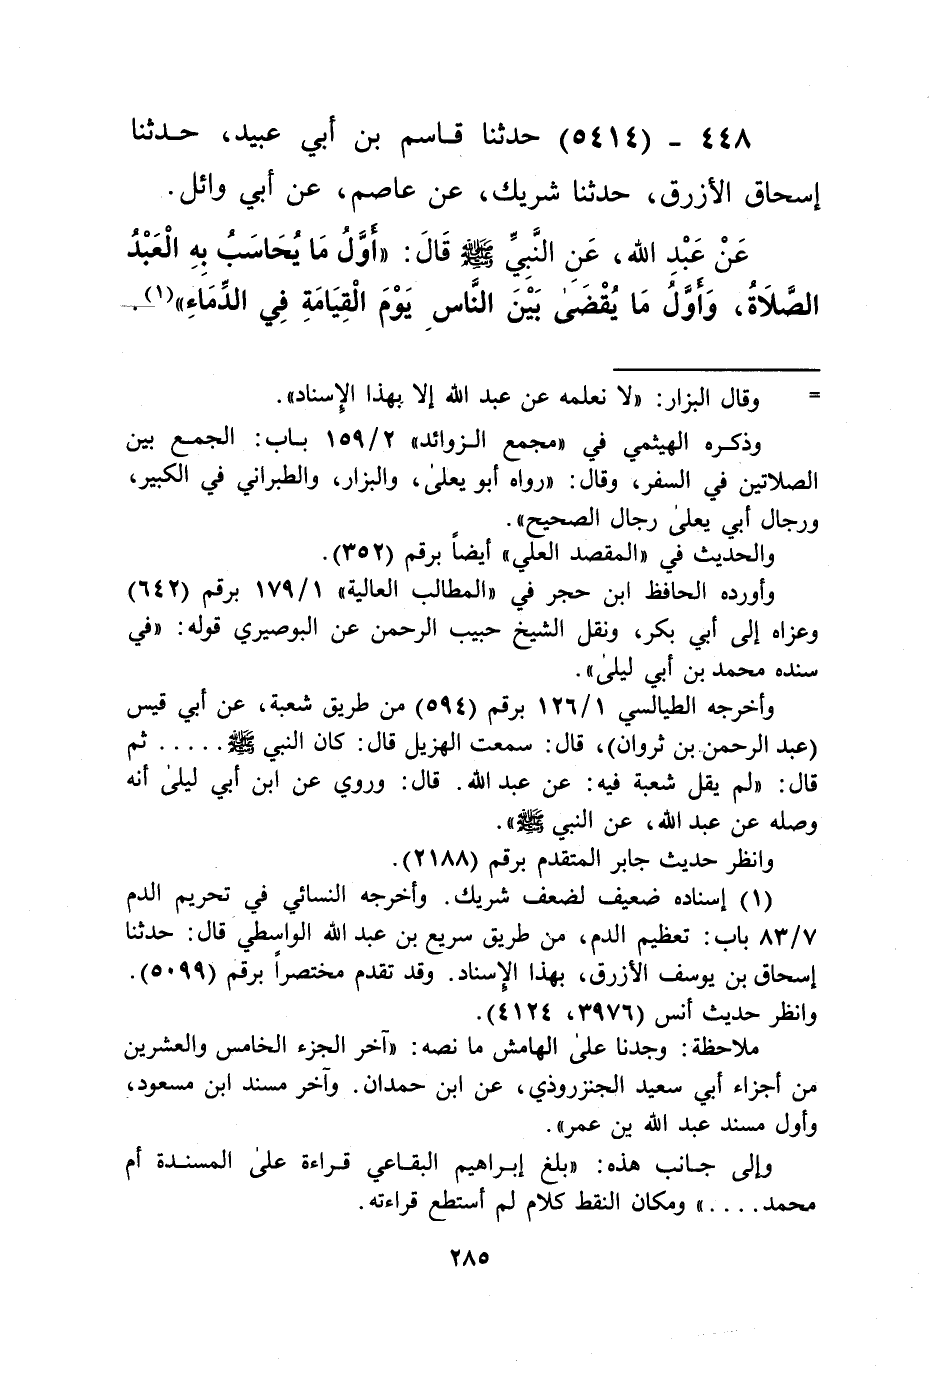 ٤٤٨ ـ (٥٤١٤) حدثنا قـاسم بن أبي عبيد، حـدثنا
إسحاق الأزرق، حدثنا شريك، عن عاصم، عن أبي وائل.
عَنْ عَبْدِ الله، عَنِ النَّبِيِّ ﷺ قَالَ: «أَوَّلُ مَا يُحَاسَبُ بِهِ الْعَبْدُ
الصَّلَاةُ، وَأَوَّلُ مَا يُقْضَىٰ بَيْنَ النَّاسِ يَوْمَ الْقِيَامَةِ فِي الدِّمَاءِ»(١).
= وقال البزار: «لا نعلمه عن عبد الله إلا بهذا الإسناد».
وذكـره الهيثمي في «مجمع الـزوائد» ١٥٩/٢ بـاب: الجمـع بين
الصلاتين في السفر، وقال: «رواه أبو يعلىٰ، والبزار، والطبراني في الكبير،
ورجال أبي يعلىٰ رجال الصحيح».
والحديث في «المقصد العلي» أيضاً برقم (٣٥٢).
وأورده الحافظ ابن حجر في «المطالب العالية» ١٧٩/١ برقم (٦٤٢)
وعزاه إلى أبي بكر، ونقل الشيخ حبيب الرحمن عن البوصيري قوله: «في
سنده محمد بن أبي ليلىٰ».
وأخرجه الطيالسي ١٢٦/١ برقم (٥٩٤) من طريق شعبة، عن أبي قيس
(عبد الرحمن بن ثروان)، قال: سمعت الهزيل قال: كان النبي ﷺ ..... ثم
قال: «لم يقل شعبة فيه: عن عبد الله. قال: وروي عن ابن أبي ليلىٰ أنه
وصله عن عبد الله، عن النبي ﷺ».
وانظر حديث جابر المتقدم برقم (٢١٨٨).
(١) إسناده ضعيف لضعف شريك. وأخرجه النسائي في تحريم الدم
٨٣/٧ باب: تعظيم الدم، من طريق سريع بن عبد الله الواسطي قال: حدثنا
إسحاق بن يوسف الأزرق، بهذا الإسناد. وقد تقدم مختصراً برقم (٥٠٩٩).
وانظر حديث أنس (٣٩٧٦، ٤١٢٤).
ملاحظة: وجدنا علىٰ الهامش ما نصه: «آخر الجزء الخامس والعشرين
من أجزاء أبي سعيد الجنزروذي، عن ابن حمدان. وآخر مسند ابن مسعود،
وأول مسند عبد الله ين عمر».
وإلى جـانب هذه: «بلغ إبـراهيم البقـاعي قـراءة علىٰ المسنـدة أم
محمد....» ومكان النقط كلام لم أستطع قراءته.
٢٨٥